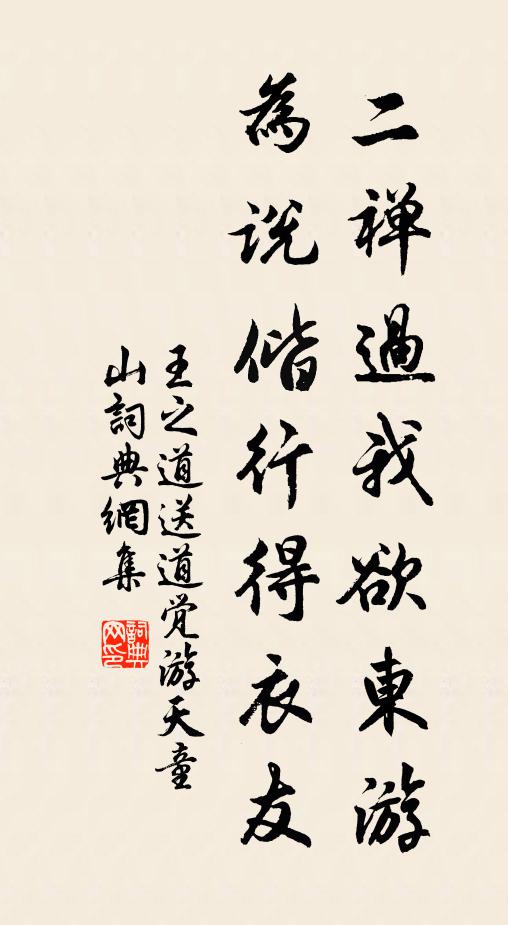 二禅過我欲東游
為説偕行得衣友
王之道送道覚游天童
山詞典網集
詞典
网印